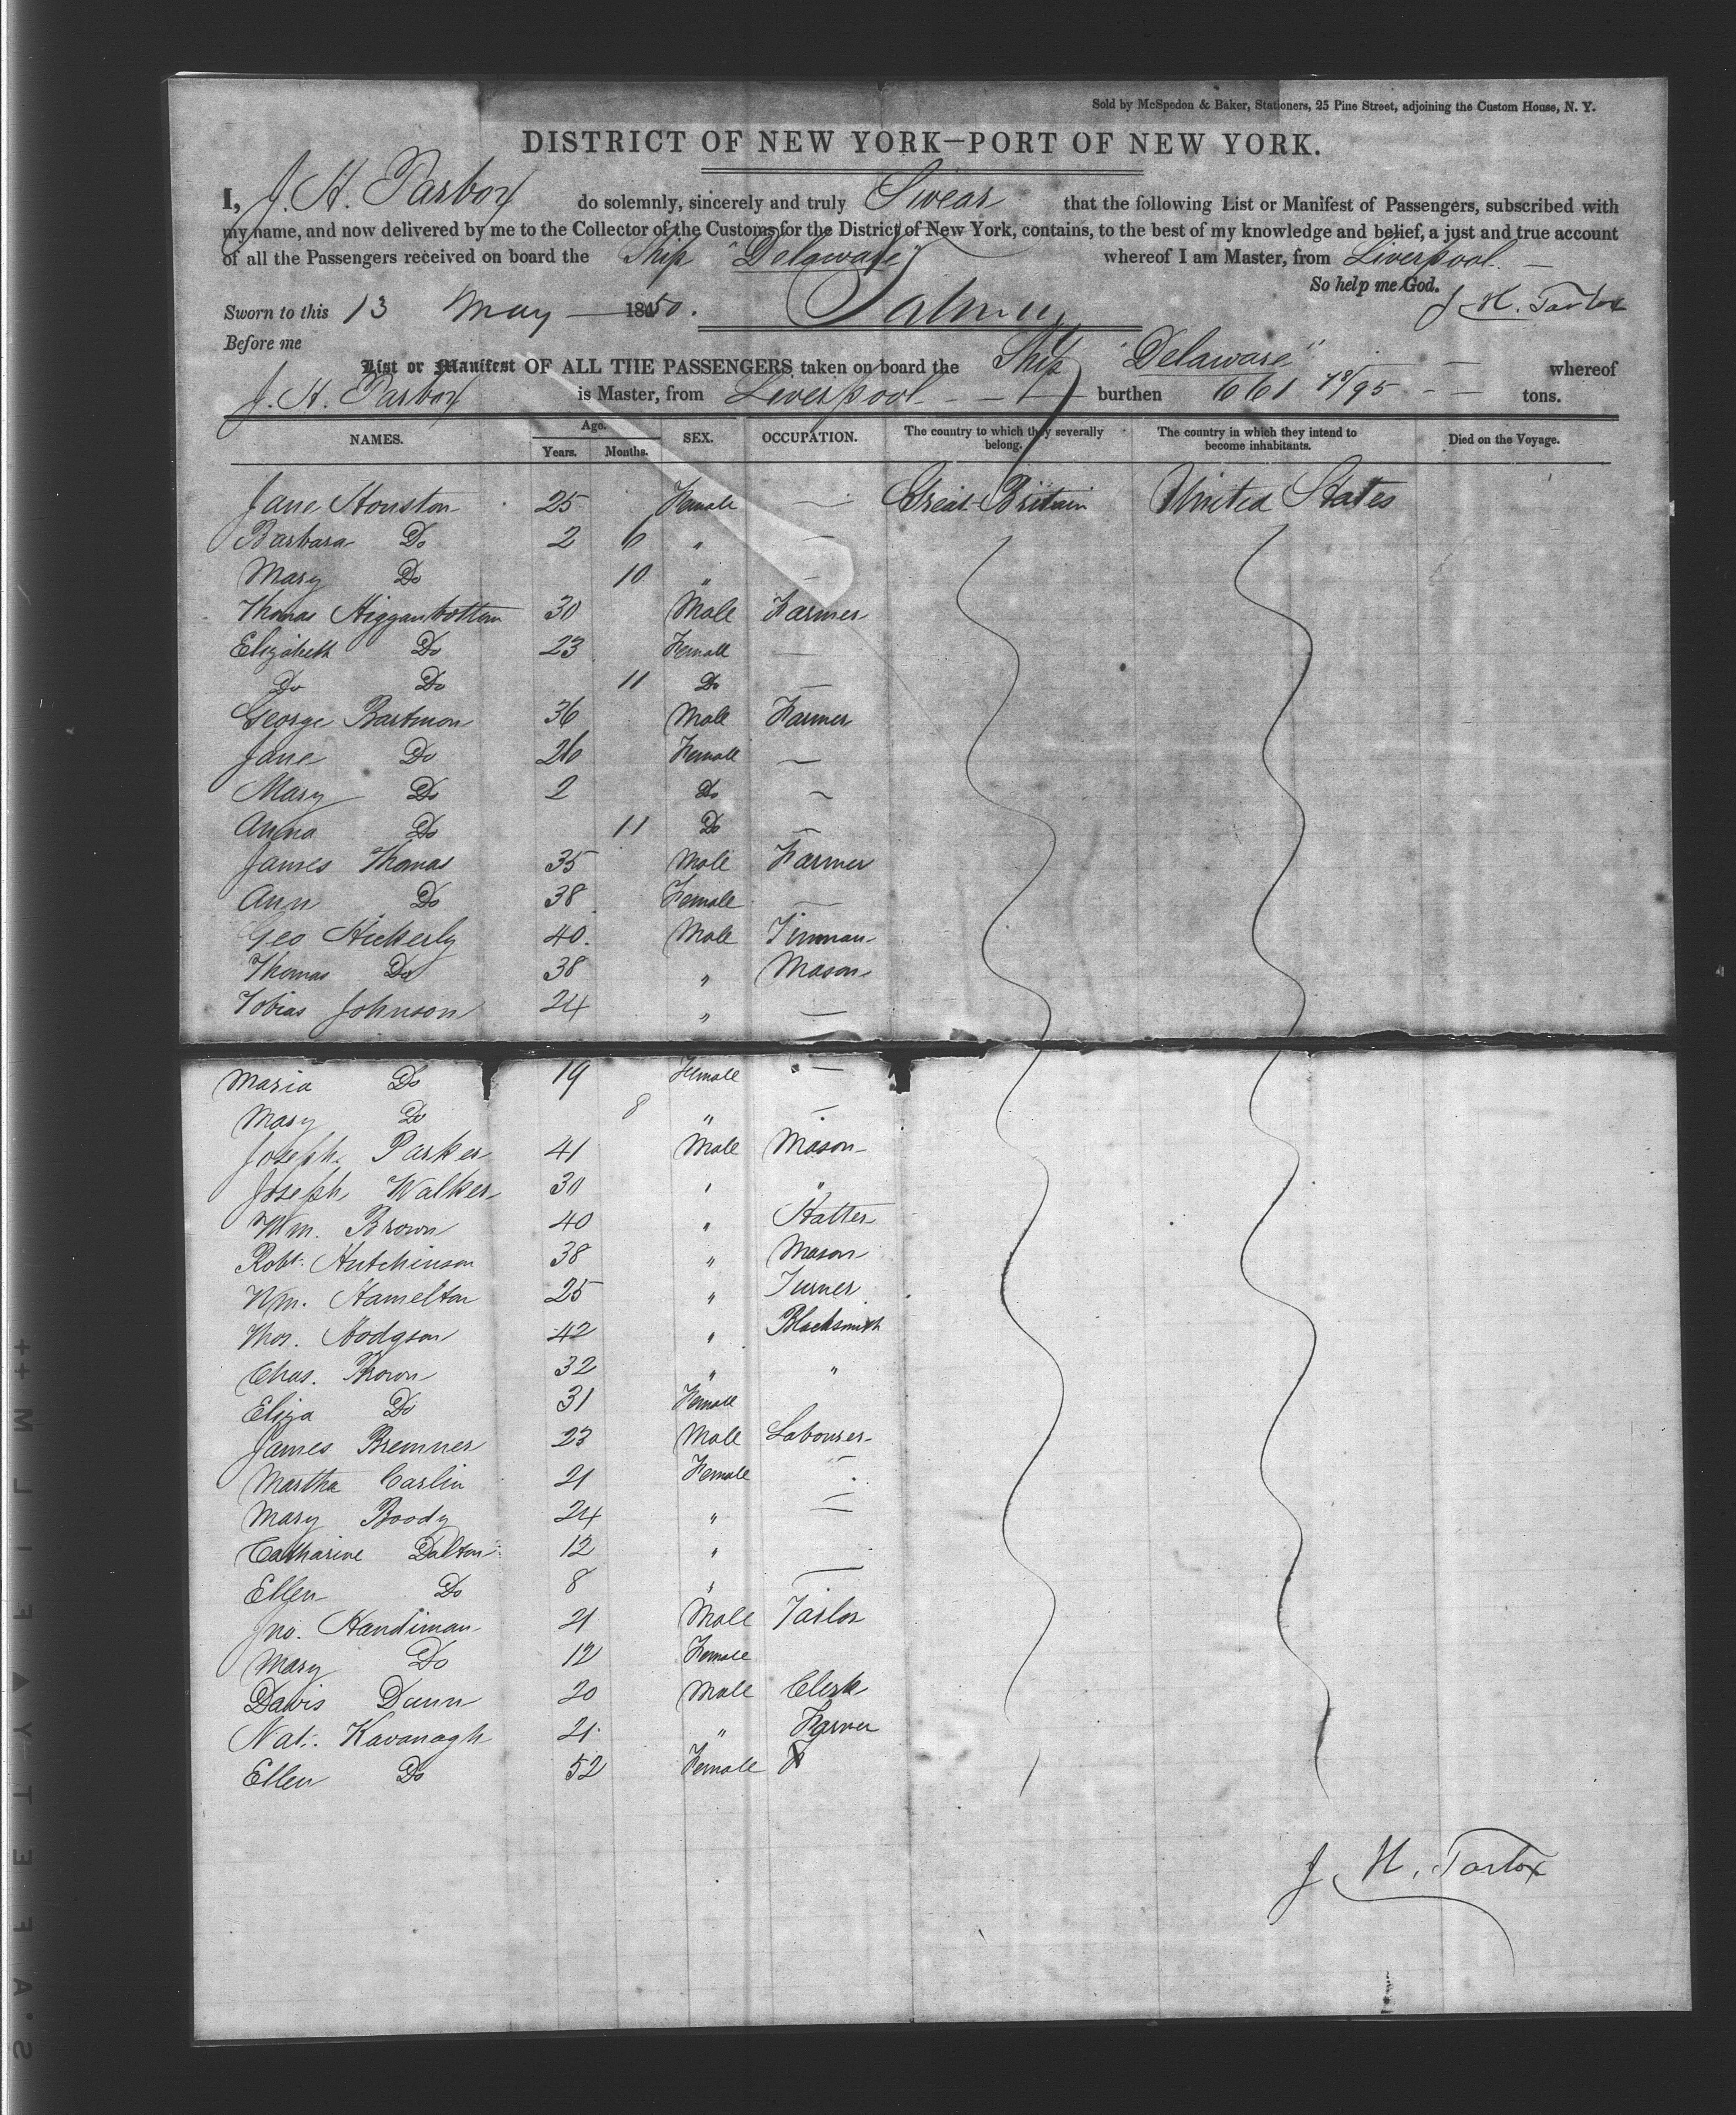 Sold by McSpedon & Baker, Stationers, 25 Pine Street, adjoining the Custom House, N. Y.
DISTRICT OF NEW YORK—PORT OF NEW YORK.
I, J. H. Tarbox do solemnly, sincerely and truly Swear that the following List or Manifest of Passengers, subscribed with
my name, and now delivered by me to the Collector of the Customs for the District of New York, contains, to the best of my knowledge and belief, a just and true account
of all the Passengers received on board the Ship "Delaware" whereof I am Master, from Liverpool. —
So help me God.
Sworn to this 13 May — 1850. J. H. Tarbox
Before me
List or Manifest OF ALL THE PASSENGERS taken on board the Ship "Delaware" — whereof
J. H. Tarbox is Master, from Liverpool — — burthen 661 /95 — — tons.
NAMES. Age. Years. Months. SEX. OCCUPATION. The country to which they severally belong. The country in which they intend to become inhabitants. Died on the Voyage.
Jane Houston 25 Female — Great Britain United States
Barbara Do 2 6 " —
Mary Do 10 " —
Thomas Higganbottom 30 Male Farmer
Elizabeth Do 23 Female —
Do Do 11 Do —
George Bartmon 36 Male Farmer
Jane Do 26 Female —
Mary Do 2 Do —
Anna Do 11 Do —
James Thomas 35 Male Farmer
Ann Do 38 Female —
Geo Hickerly 40. Male Tinman
Thomas Do 38 " Mason
Tobias Johnson 24 " —
Maria Do 19 Female —
Mary Do 8 " —
Joseph Parker 41 Male Mason
Joseph Walker 30 " "
Wm. Brown 40 " Hatter
Robt. Hutchinson 38 " Mason
Wm. Hamelton 25 " Turner
Thos. Hodgson 42 " Blacksmith
Chas. Brown 32 " "
Eliza Do 31 Female
James Bremner 23 Male Labourer
Martha Carlin 21 Female —
Mary Boody 24 " —
Catharine Dalton 12 "
Ellen Do 8 " —
Jno. Handiman 21 Male Tailor
Mary Do 12 Female
Davis Dunn 20 Male Clerk
Nat. Kavanagh 21 " Farmer
Ellen Do 52 Female
J. H. Tarbox